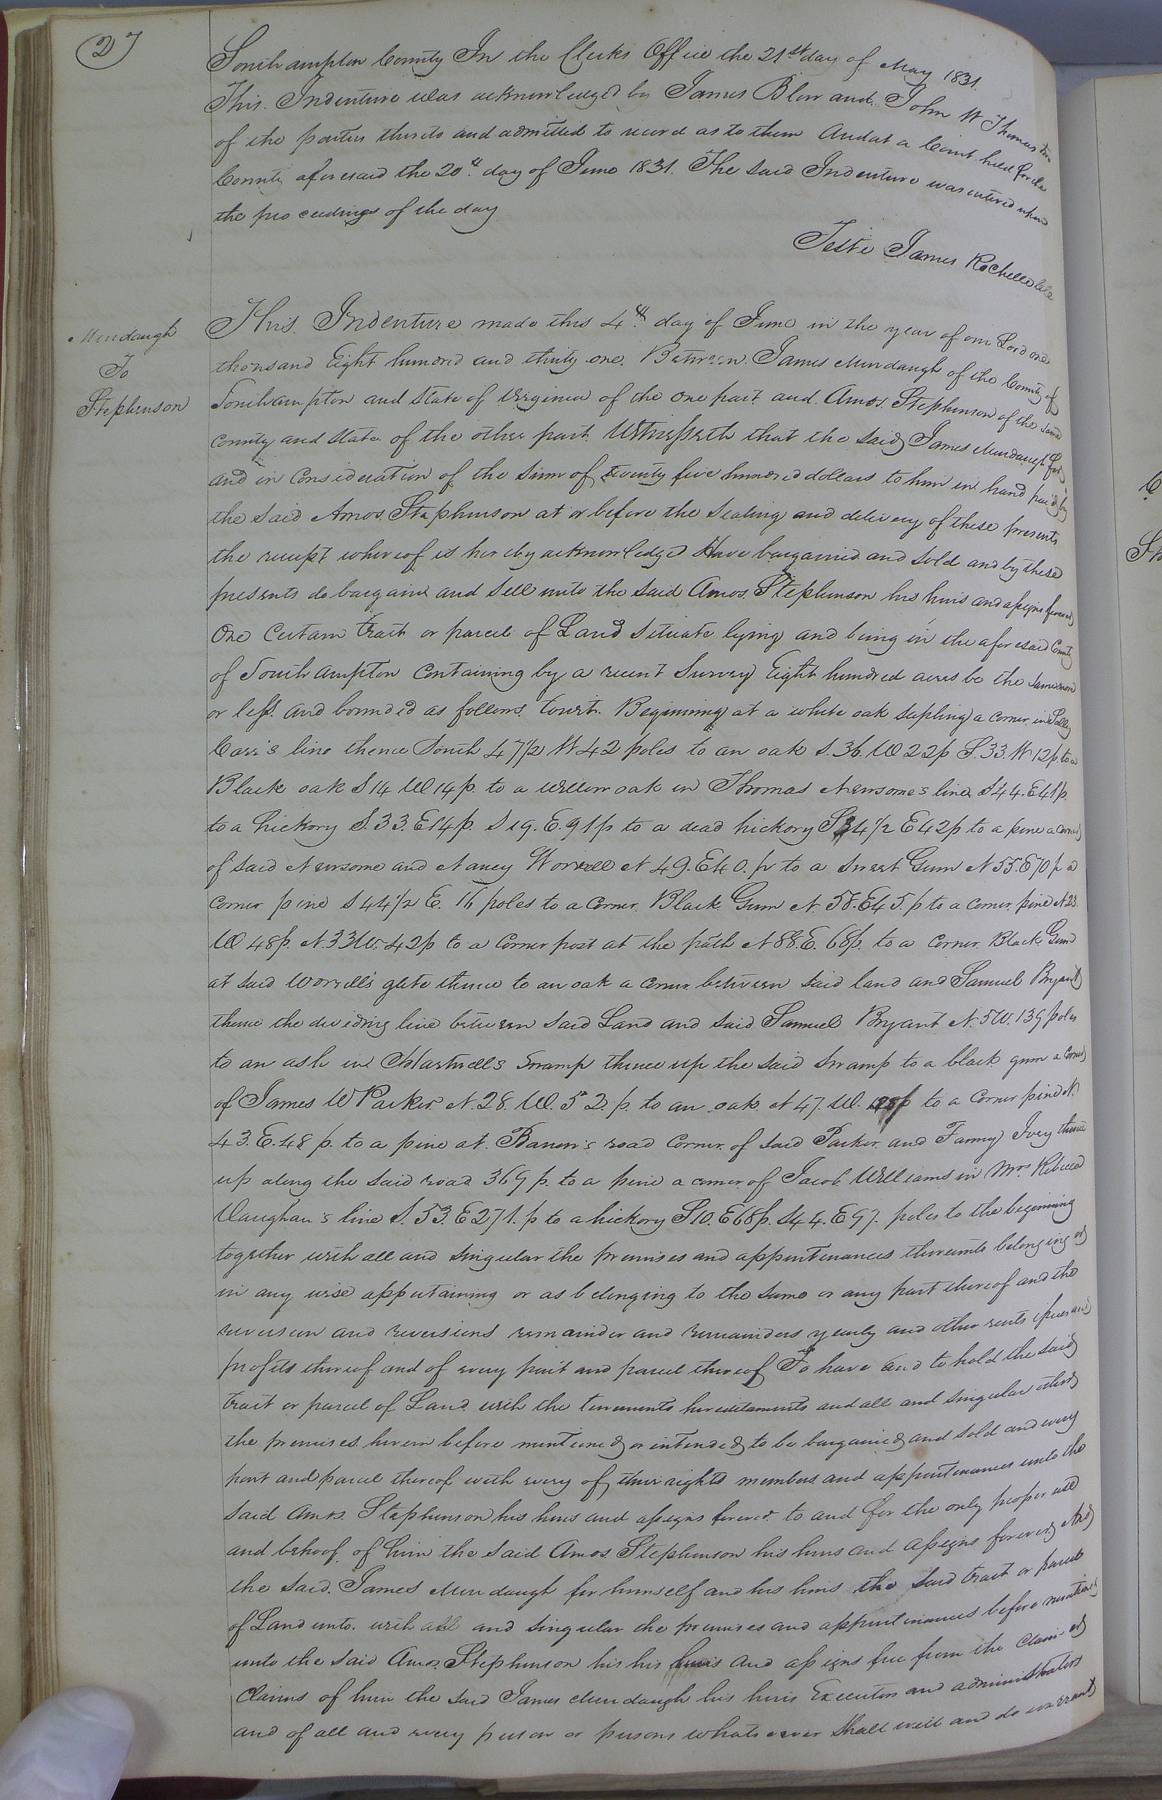 27
Southampton County In the Clerks Office the 21st day of May 1831.
This Indenture was acknowledged by James Blow and John W Thomas two
of the parties thereto and admitted to record as to them And at a Court held for the
County aforesaid the 20th day of June 1831. The said Indenture was entered upon
the proceedings of the day
Teste James Rochelle Clk
Murdaugh
To
Stephenson
This Indenture made this 4th day of June in the year of our Lord one
thousand Eight hundred and thirty one. Between James Murdaugh of the County of
Southampton and State of Virginia of the one part and Amos Stephenson of the said
County and State of the other part Witnesseth that the said James Murdaugh for
and in Consideration of the Sum of twenty five hundred dollars to him in hand paid by
the said Amos Stephenson at or before the Sealing and delivery of these presents
the receipt whereof is hereby acknowledged Have bargained and sold and by these
presents do bargain and Sell unto the said Amos Stephenson his heirs and assigns forever
One Certain tract or parcel of Land Situate lying and being in the aforesaid County
of Southampton Containing by a recent Survey Eight hundred acres be the same more
or less. and bounded as follows towit. Beginning at a white oak sapling a corner in Sally
Carr's line thence South 47½ W 42 poles to an oak S. 36. W 22p S. 33. W 12p. to a
Black oak S 14 W 14p. to a willow oak in Thomas Newsome's line S 44. E 41p.
to a hickory S. 33. E 14p. S 19. E. 91p to a dead hickory S 34½ E 42p to a pine a corner
of said Newsome and Nancy Worrell N 49. E 40. p to a Sweet Gum N 55. E 70 p a
Corner pine S 44½ E. 16 poles to a Corner Black Gum N. 58. E 45. p to a Corner pine N 23.
W 48p. N. 33 W. 42p to a Corner post at the path N 88. E. 68p. to a Corner Black Gum
at said Worrell's gate thence to an oak a corner between said land and Samuel Bryant
thence the dividing line between said Land and said Samuel Bryant N. 5 W. 139 poles
to an ash in Swamp thence up the said Swamp to a black gum a corner
of James W Parker N. 28. W. 52 p. to an oak N 47. W. to a Corner pine N
43. E. 48 p. to a pine at road Corner of said Parker and Fanny Ivey thence
up along the said road 369 p. to a pine a corner of Jacob Williams in Mrs Rebecca
Vaughan's line S. 53. E 271. p to a hickory S 10. E 68p. S 44. E 97. poles to the beginning
together with all and singular the premises and appurtenances thereunto belonging or
in any wise appertaining or as belonging to the same or any part thereof and the
reversion and reversions remainder and remainders yearly and other rents issues and
profits thereof and of every part and parcel thereof To have and to hold the said
tract or parcel of Land with the tenements hereditaments and all and singular other
the premises herein before mentioned or intended to be bargained and sold and every
part and parcel thereof with every of their rights members and appurtenances unto the
said Amos Stephenson his heirs and assigns forever to and for the only proper use
and behoof of him the said Amos Stephenson his heirs and assigns forever And
the said James Murdaugh for himself and his heirs the said tract or parcel
of Land unto. with all and singular the premises and appurtenances before mentioned
unto the said Amos Stephenson his his heirs and assigns free from the claim or
Claims of him the said James Murdaugh his heirs Executors and administrators
and of all and every person or persons whatsoever Shall will and do warrant